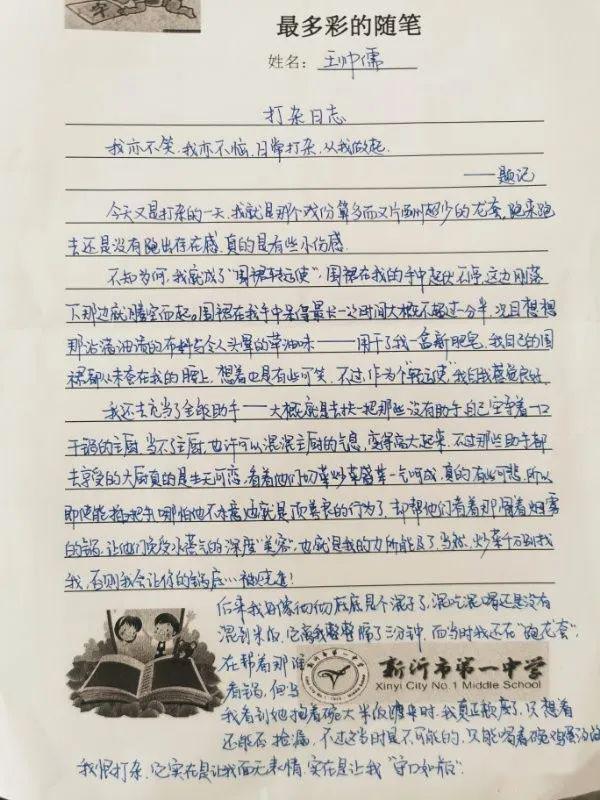 字
最多彩的随笔
姓名：王帅儒
打杂日志
我亦不笑,我亦不恼,日常打杂,从我做起.
——题记
今天又是打杂的一天,我就是那个戏份算多而又片酬超少的龙套,跑来跑
去还是没有跑出存在感,真的是有些小伤感.
不知为何,我就成了"围裙转运使",围裙在我的手中起伏不停,这边刚落
下那边就腾空而起。围裙在我手中呆得最长一次时间大概不超过一分半,况且想想
那沾满油渍的布料与令人头晕的草油味——用了我一盒新肥皂,我自己的围
裙都从未套在我的腰上,想着也是有些可笑,不过,作为个"转运使",我自我感觉良好.
我还去充当了全能助手——大概就是去扶一把那些没有助手自己空守着一口
干锅的主厨,当不了主厨,也许可以混混主厨的气息,变得高大起来,不过那些助手都
去享受的大厨真的是生无可恋,看着他们切菜炒菜盛菜一气呵成,真的有些可悲,所以
即使能搭把手,哪怕他不愿意也就是顶美良的行为了,却帮他们看着那冒着烟雾
的锅,让他们免受水蒸气的深度"美容",也就是我的力所能及了,当然,炒菜千万别找
我,否则我会让你的锅底…被烧焦!
后来我好像彻彻底底是个混子了,混吃混喝还是没有
混到米饭,它离我整整隔了三分钟,而当时我还在"跑龙套".
在帮着那
看锅,但当
新沂市第一中学
Xinyi City No.1 Middle School
我看到她抱着碗大米饭蹲来时,我真正服意了,只想着
还能否捡漏,不过这当时是不可能的,只能喝着碗鸡蛋汤的
我恨打杂,它实在是让我面无表情,实在是让我"守口如瓶".